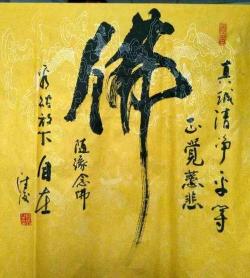 真诚清净平等
正觉慈悲
佛
随缘念佛
看破放下自在